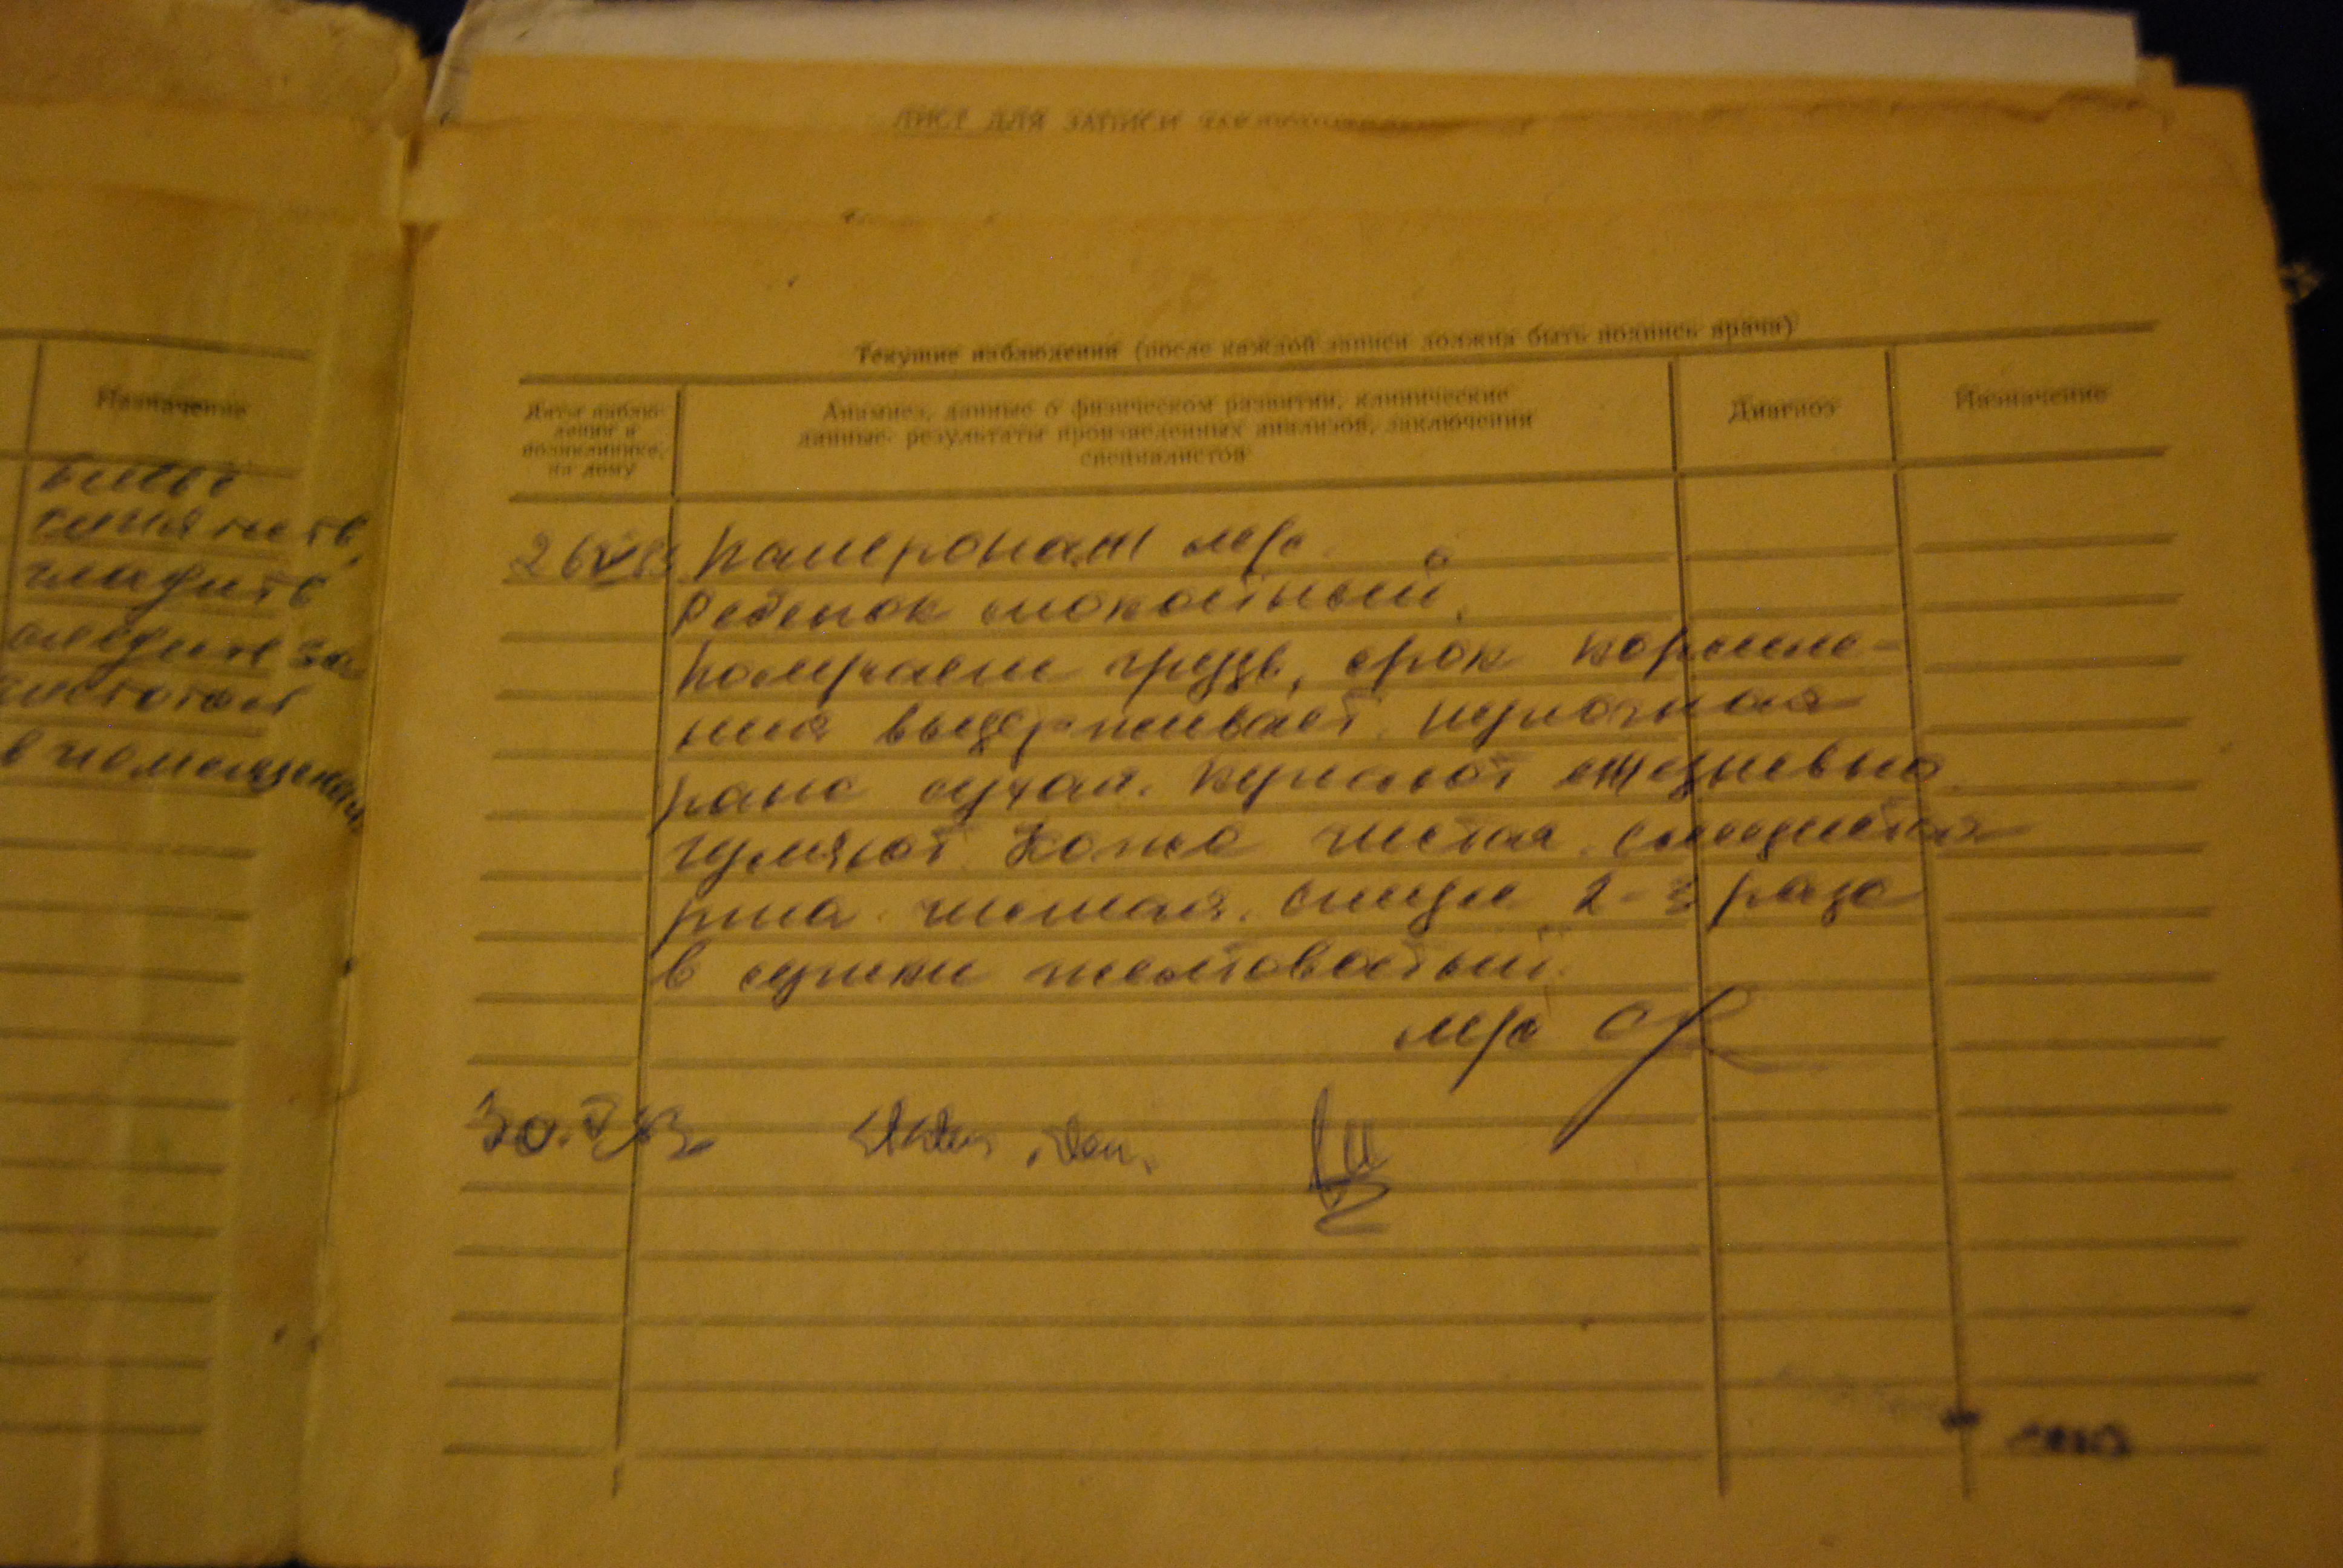 ЛИСТ ДЛЯ ЗАПИСИ
Текущие наблюдения (после каждой записи должна быть подпись врача)
Назначение
Даты наблю-
дения в
поликлинике,
на дому
Анамнез, данные о физическом развитии, клинические
данные, результаты произведенных анализов, заключения
специалистов
Диагноз
Назначение
гладить
следить за
чистотой
в помещении
26 Патронаж м/с.
Ребенок спокойный.
Получает грудь, срок кормле-
ния выдерживает. пупочная
рана сухая. купают ежедневно
гуляют. Кожа чистая. слизистая
рта чистая. 2-3 раза
в сутки желтоватый.
м/с
30.